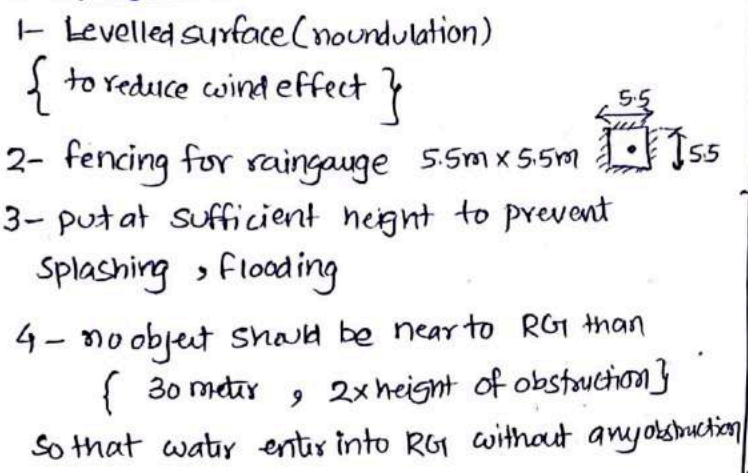 1- Levelled surface (noundulation)
{ to reduce wind effect }
2- fencing for raingauge 5.5m x 5.5m
5.5
5.5
3- put at sufficient height to prevent
splashing , flooding
4- no object should be near to RG than
{ 30 meter , 2x height of obstruction }
so that water enter into RG without any obstruction